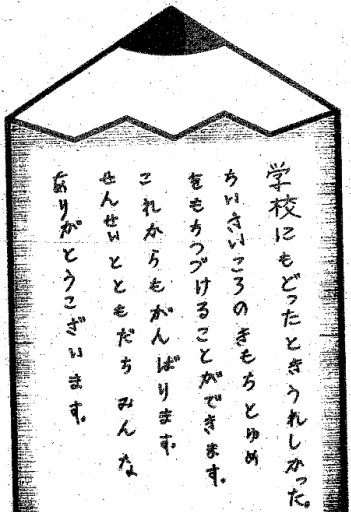 学校にもどったときうれしかった。
ちいさいころのきもちとゆめ
をもちつづけることができます。
これからもがんばります。
せんせいとともだち みんな
ありがとうございます。